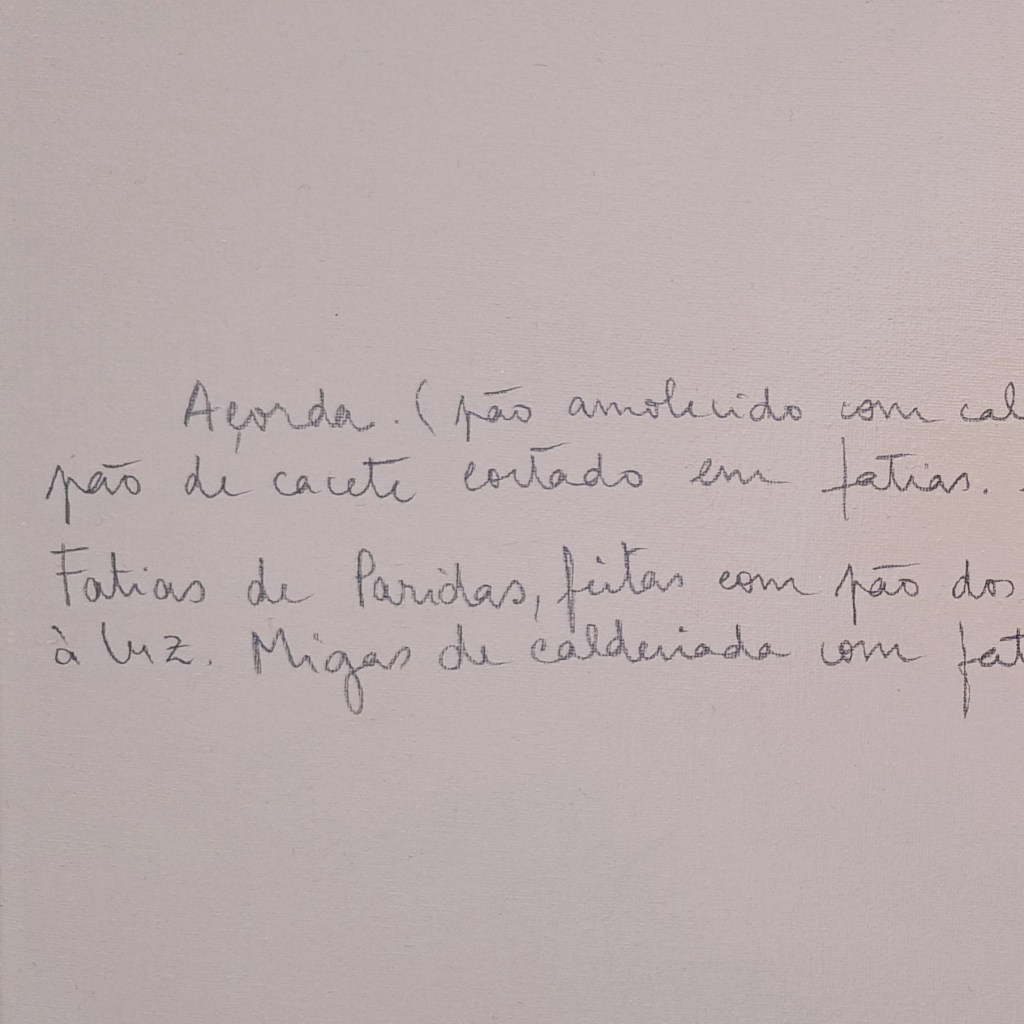 Açorda. (pão amolecido com cal
pão de cacete cortado em fatias.
Fatias de Paridas, feitas com pão dos
à luz. Migas de caldeirada com fat